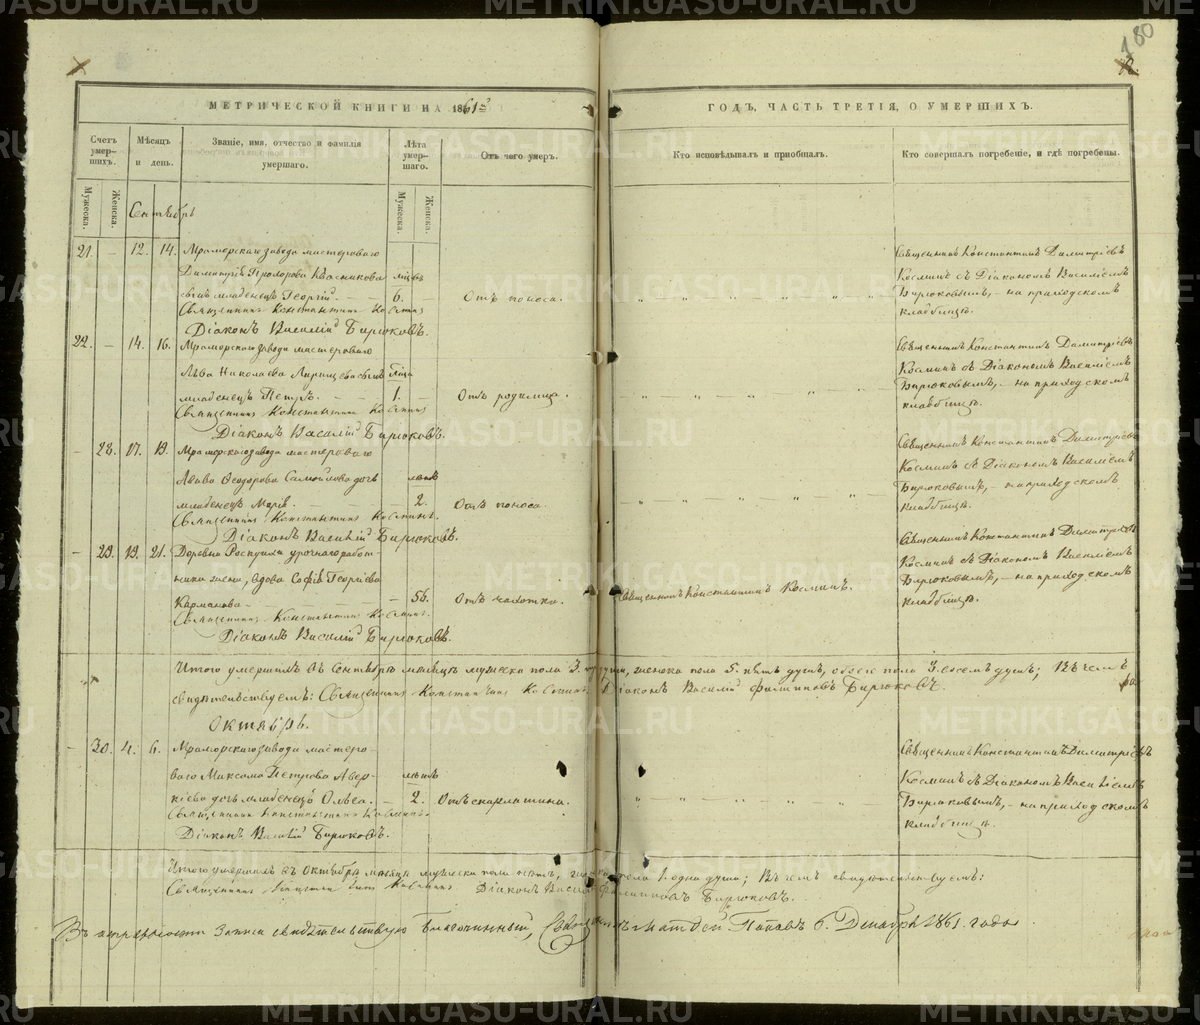 180
МЕТРИЧЕСКОЙ КНИГИ НА 1861й
ГОДЪ, ЧАСТЬ ТРЕТІЯ, О УМЕРШИХЪ.
Счетъ умер-шихъ.
Мѣсяцъ и день.
Званіе, имя, отчество и фамилія умершаго.
Лѣта умер-шаго.
Отъ чего умеръ.
Кто исповѣдывалъ и пріобщалъ.
Кто совершалъ погребеніе, и гдѣ погребены.
Мужеска.
Женска.
Мужеска.
Женска.
Сентябрь
21. – 12. 14. Мраморскаго завода мастероваго
Димитрія Прохорова Квасникова мѣсяцъ
сынъ младенецъ Георгій. – 6. – Отъ поноса.
Священникъ Константинъ Космин
Діаконъ Василій Бирюковъ.
Священникъ Константинъ Димитріевъ
Косминъ съ Діакономъ Василіемъ
Бирюковымъ, – на приходскомъ
кладбищѣ.
22. – 14. 16. Мраморскаго завода мастероваго
Льва Николаева сынъ
младенецъ Петръ. – 1. – Отъ родимца.
Священникъ Константинъ Космин
Діаконъ Василій Бирюковъ.
Священникъ Константинъ Димитріевъ
Косминъ съ Діакономъ Василіемъ
Бирюковымъ, – на приходскомъ
кладбищѣ.
– 28. 17. 19. Мраморскаго завода мастероваго
Ѳеодорова Самойлова дочь лѣтъ
младенецъ Марія. – 2. Отъ поноса.
Священникъ Константинъ Косминъ.
Діаконъ Василій Бирюковъ.
Священникъ Константинъ Димитріевъ
Косминъ съ Діакономъ Василіемъ
Бирюковымъ, – на приходскомъ
кладбищѣ.
– 29. 19. 21. Деревни Роскуихи урочнаго работ-
ника жена, вдова Софія Георгіева
Карманова – 56. Отъ чахотки.
Священникъ Константинъ Косминъ.
Діаконъ Василій Бирюковъ.
Священникъ Константинъ Косминъ.
Священникъ Константинъ Димитріевъ
Косминъ съ Діакономъ Василіемъ
Бирюковымъ, – на приходскомъ
кладбищѣ.
Итого умершихъ въ Сентябрѣ мѣсяцѣ мужеска пола 3. души, женска пола 5. пять душъ, обоего пола 8. восемь душъ; Въ чемъ
свидѣтельствуемъ: Священникъ Константинъ Косминъ Діаконъ Василій Филиповъ Бирюковъ.
Октябрь.
– 30. 4. 6. Мраморскаго завода мастеро-
ваго Максима Петрова Авер- лѣтъ
кіева дочь младенецъ Ольга. – 2. Отъ скарлатина.
Священникъ Константинъ Косминъ
Діаконъ Василій Бирюковъ.
Священникъ Константинъ Димитріевъ
Косминъ съ Діакономъ Василіемъ
Бирюковымъ, – на приходскомъ
кладбищѣ.
Итого умершихъ въ Октябрѣ мѣсяцѣ мужеска пола нѣтъ, женска пола 1. одна душа; Въ чемъ свидѣтельствуемъ:
Священникъ Константинъ Косминъ Діаконъ Василій Филиповъ Бирюковъ.
Въ вѣрности записи свидѣтельствую Благочинный, Священникъ Матѳей Поповъ 6. Декабря 1861. года
METRIKI.GASO-URAL.RU